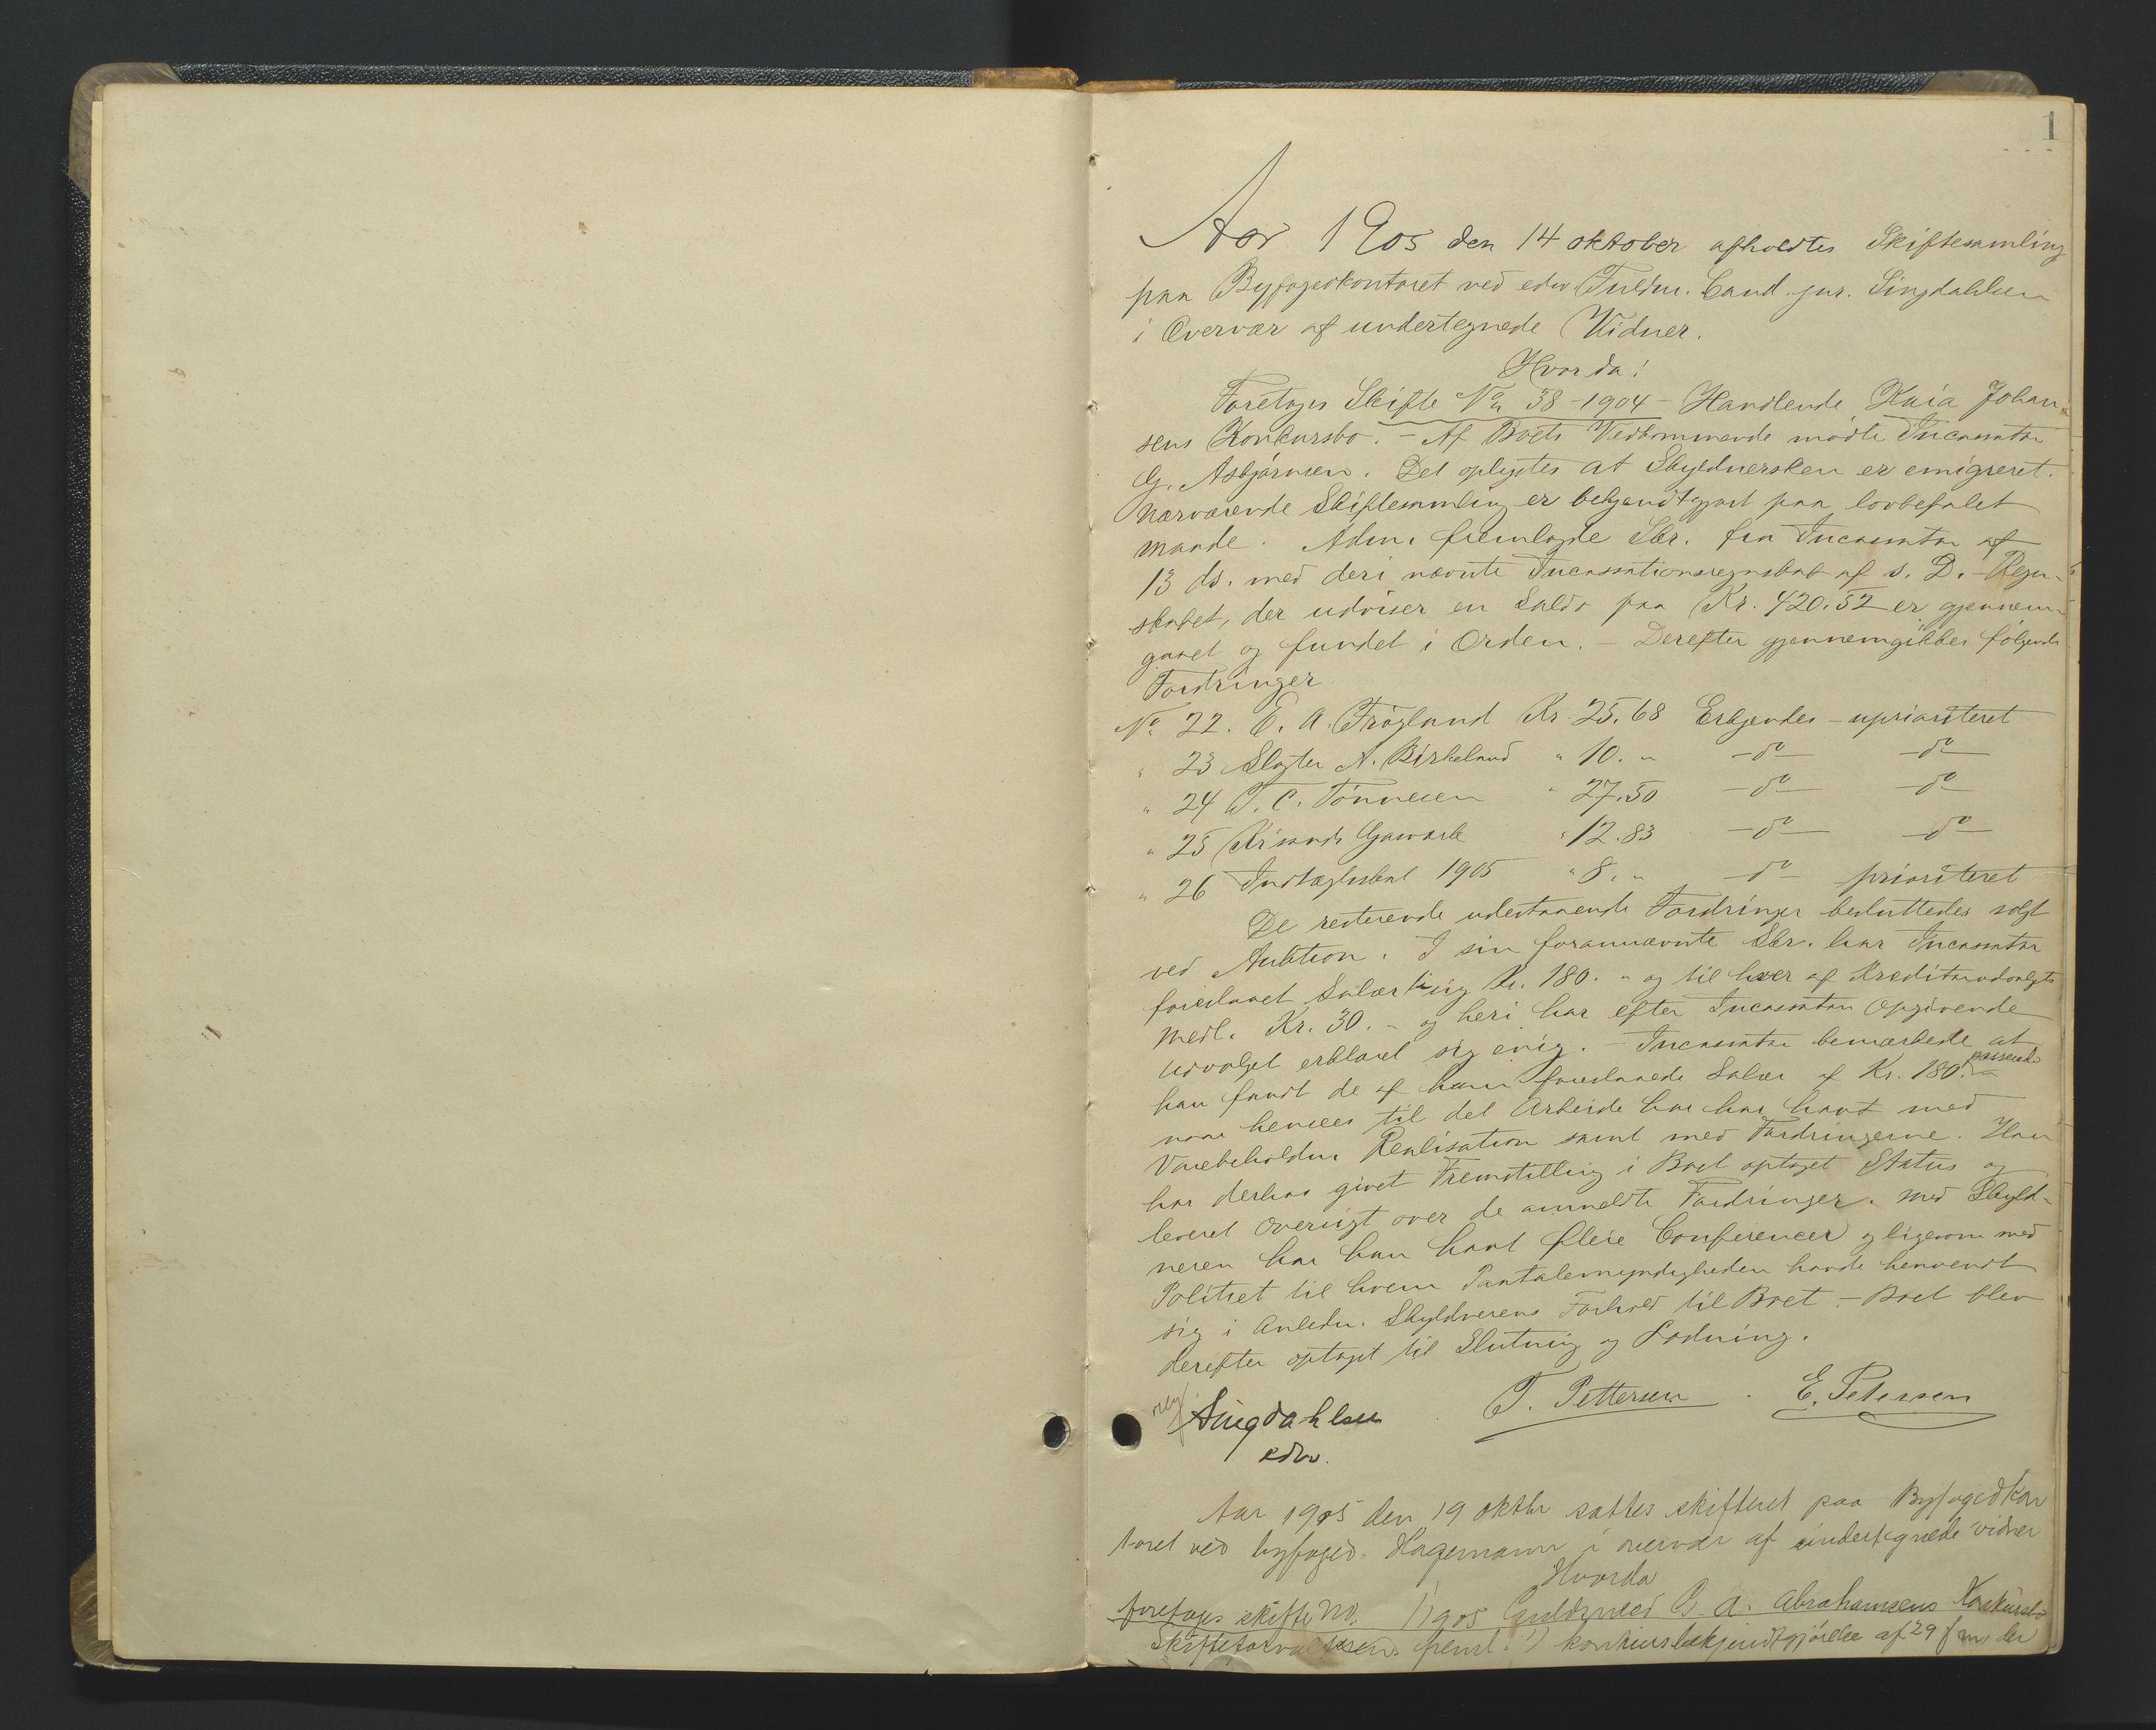 1
Aar 1905 den 14 oktober afholdtes Skiftesamling
paa Byfogedkontoret ved edsv Fuldm. Cand. jur. Singdahlsen
i Overvær af undertegnede Vidner.
Hvorda!
Foretoges Skifte No 38-1904 - Handlende Kaia Johan-
sens Konkursbo. - Af Boets Vedkommende mødte Incassator
G. Asbjørnsen. Det oplystes at Skyldnersken er emigreret.
Nærværende Skiftesamling er bekjendtgjort paa lovbefalet
maade. Adm. fremlagde Skr. fra Incassator af
13 ds. med deri nævnte Incassationsregnskab af s. D. - Regn-
skabet, der udviser en Saldo paa Kr. 420.52 er gjennem-
gaaet og fundet i Orden. - Derefter gjennemgikkes følgende
Fordringer
No 22. E. A. Frøgland Kr 25.68 Erkjendes - uprioriteret
" 23 Slagter A. Birkeland " 10. " - do - - do -
" 24 T. C. Tønnesen " 27.50 - do - - do -
" 25 Krsands Gasværk " 12.83 - do - - do -
" 26 Indtægtsskat 1905 " 8. " - do - prioriteret
De resterende udestaaende Fordringer besluttedes solgt
ved Auktion. I sin forannævnte Skr. har Incassator
foreslaaet Salær til sig Kr. 180. " og til hver af Kreditorudvalgts
medl. Kr. 30. - og heri har efter Incassators Opgivende
udvalget erklæret sig enig. - Incassator bemærkede at
han fandt de af ham foreslaaede Salær af Kr. 180. - passende
naar hensees til det Arbeide han har havt med
Varebeholdn. Realisation samt med Fordringerne. Han
har derhos givet Fremstilling i Boet optaget Status og
leveret Oversigt over de anmeldte Fordringer. Med Skyld-
neren har han havt flere Conferencer og ligesom med
Politiet til hvem Paatalemyndigheden havde henvendt
sig i Anledn. Skyldnerens Forhold til Boet. - Boet blev
derefter optaget til Slutning og Lodning.
Singdahlsen T. Pettersen E. Petersen
edsv.
Aar 1905 den 19 oktbr sattes skifteret paa Byfogedkon
toret ved byfoged Hagemann i overvær af undertegnede vidner
Hvorda
foretoges skifte No. 1/1905 Guldsmed G. A. Abrahamsens Konkursbo
Skifteforvalteren freml. 1) konkursbekjendtgjørelse af 29 f m, der